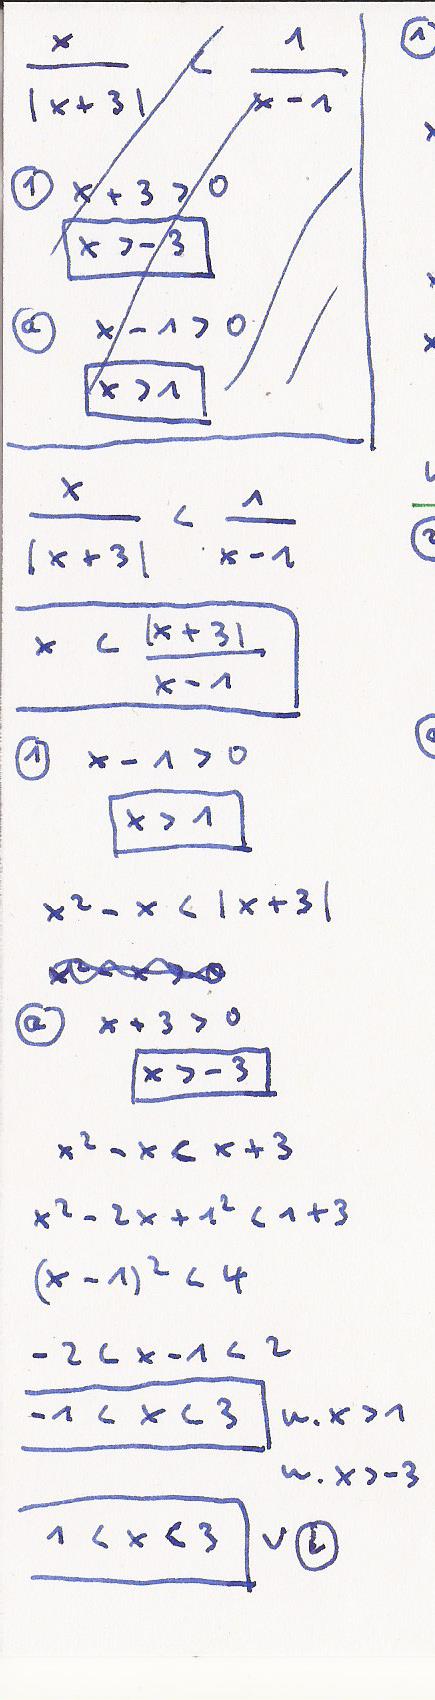 x / |x+3| < 1 / x-1
① x+3 > 0
x > -3
ⓐ x-1 > 0
x > 1
x / |x+3| < 1 / x-1
x < |x+3| / x-1
① x-1 > 0
x > 1
x² - x < |x+3|
ⓐ x+3 > 0
x > -3
x² - x < x+3
x² - 2x + 1² < 1+3
(x-1)² < 4
-2 < x-1 < 2
-1 < x < 3 u. x > 1
u. x > -3
1 < x < 3 v
①